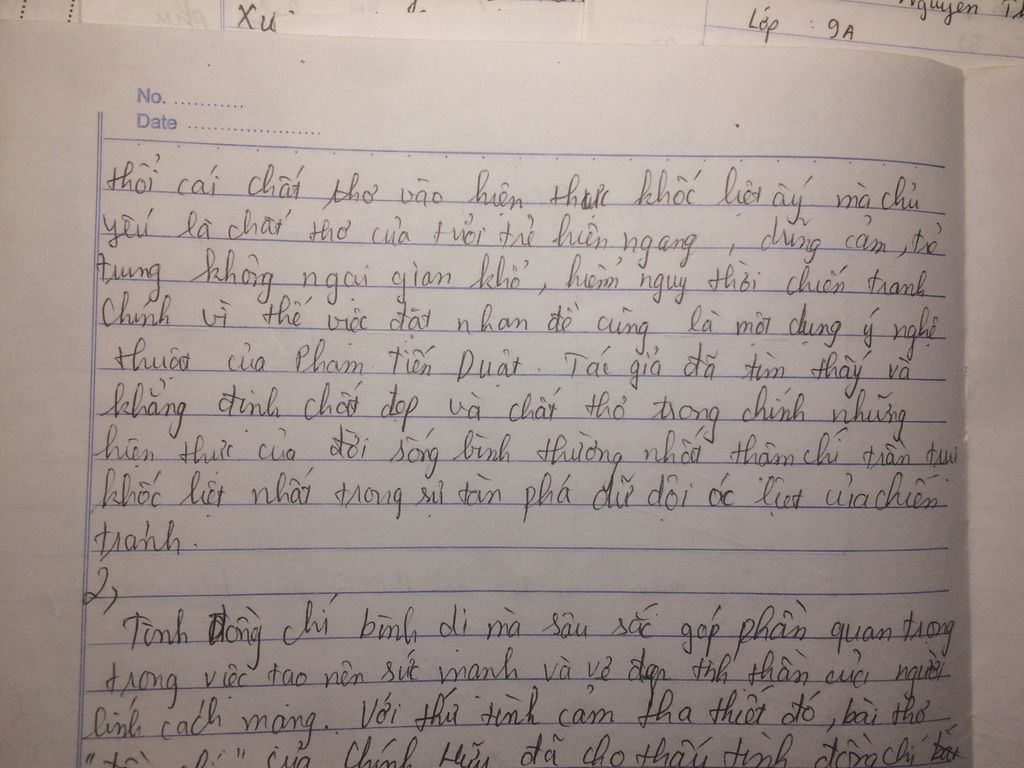 Xu
Nguyen Th
Lớp : 9A
No. ...........
Date ......................
thổi cái chất thơ vào hiện thực khốc liệt ấy mà chủ
yếu là chất thơ của tuổi trẻ hiên ngang, dũng cảm, trẻ
trung không ngại gian khổ, hiểm nguy thời chiến tranh
Chính vì thế việc đặt nhan đề cũng là một dụng ý nghệ
thuật của Phạm Tiến Duật. Tác giả đã tìm thấy và
khẳng định chất đẹp và chất thơ trong chính những
hiện thực của đời sống bình thường nhất thậm chí trần trụi
khốc liệt nhất trong sự tàn phá dữ dội ác liệt của chiến
tranh.
2,
Tình đồng chí bình dị mà sâu sắc góp phần quan trọng
trong việc tạo nên sức mạnh và vẻ đẹp tinh thần của người
lính cách mạng. Với thứ tình cảm tha thiết đó, bài thơ
của Chính Hữu đã cho thấy tình đồng chí